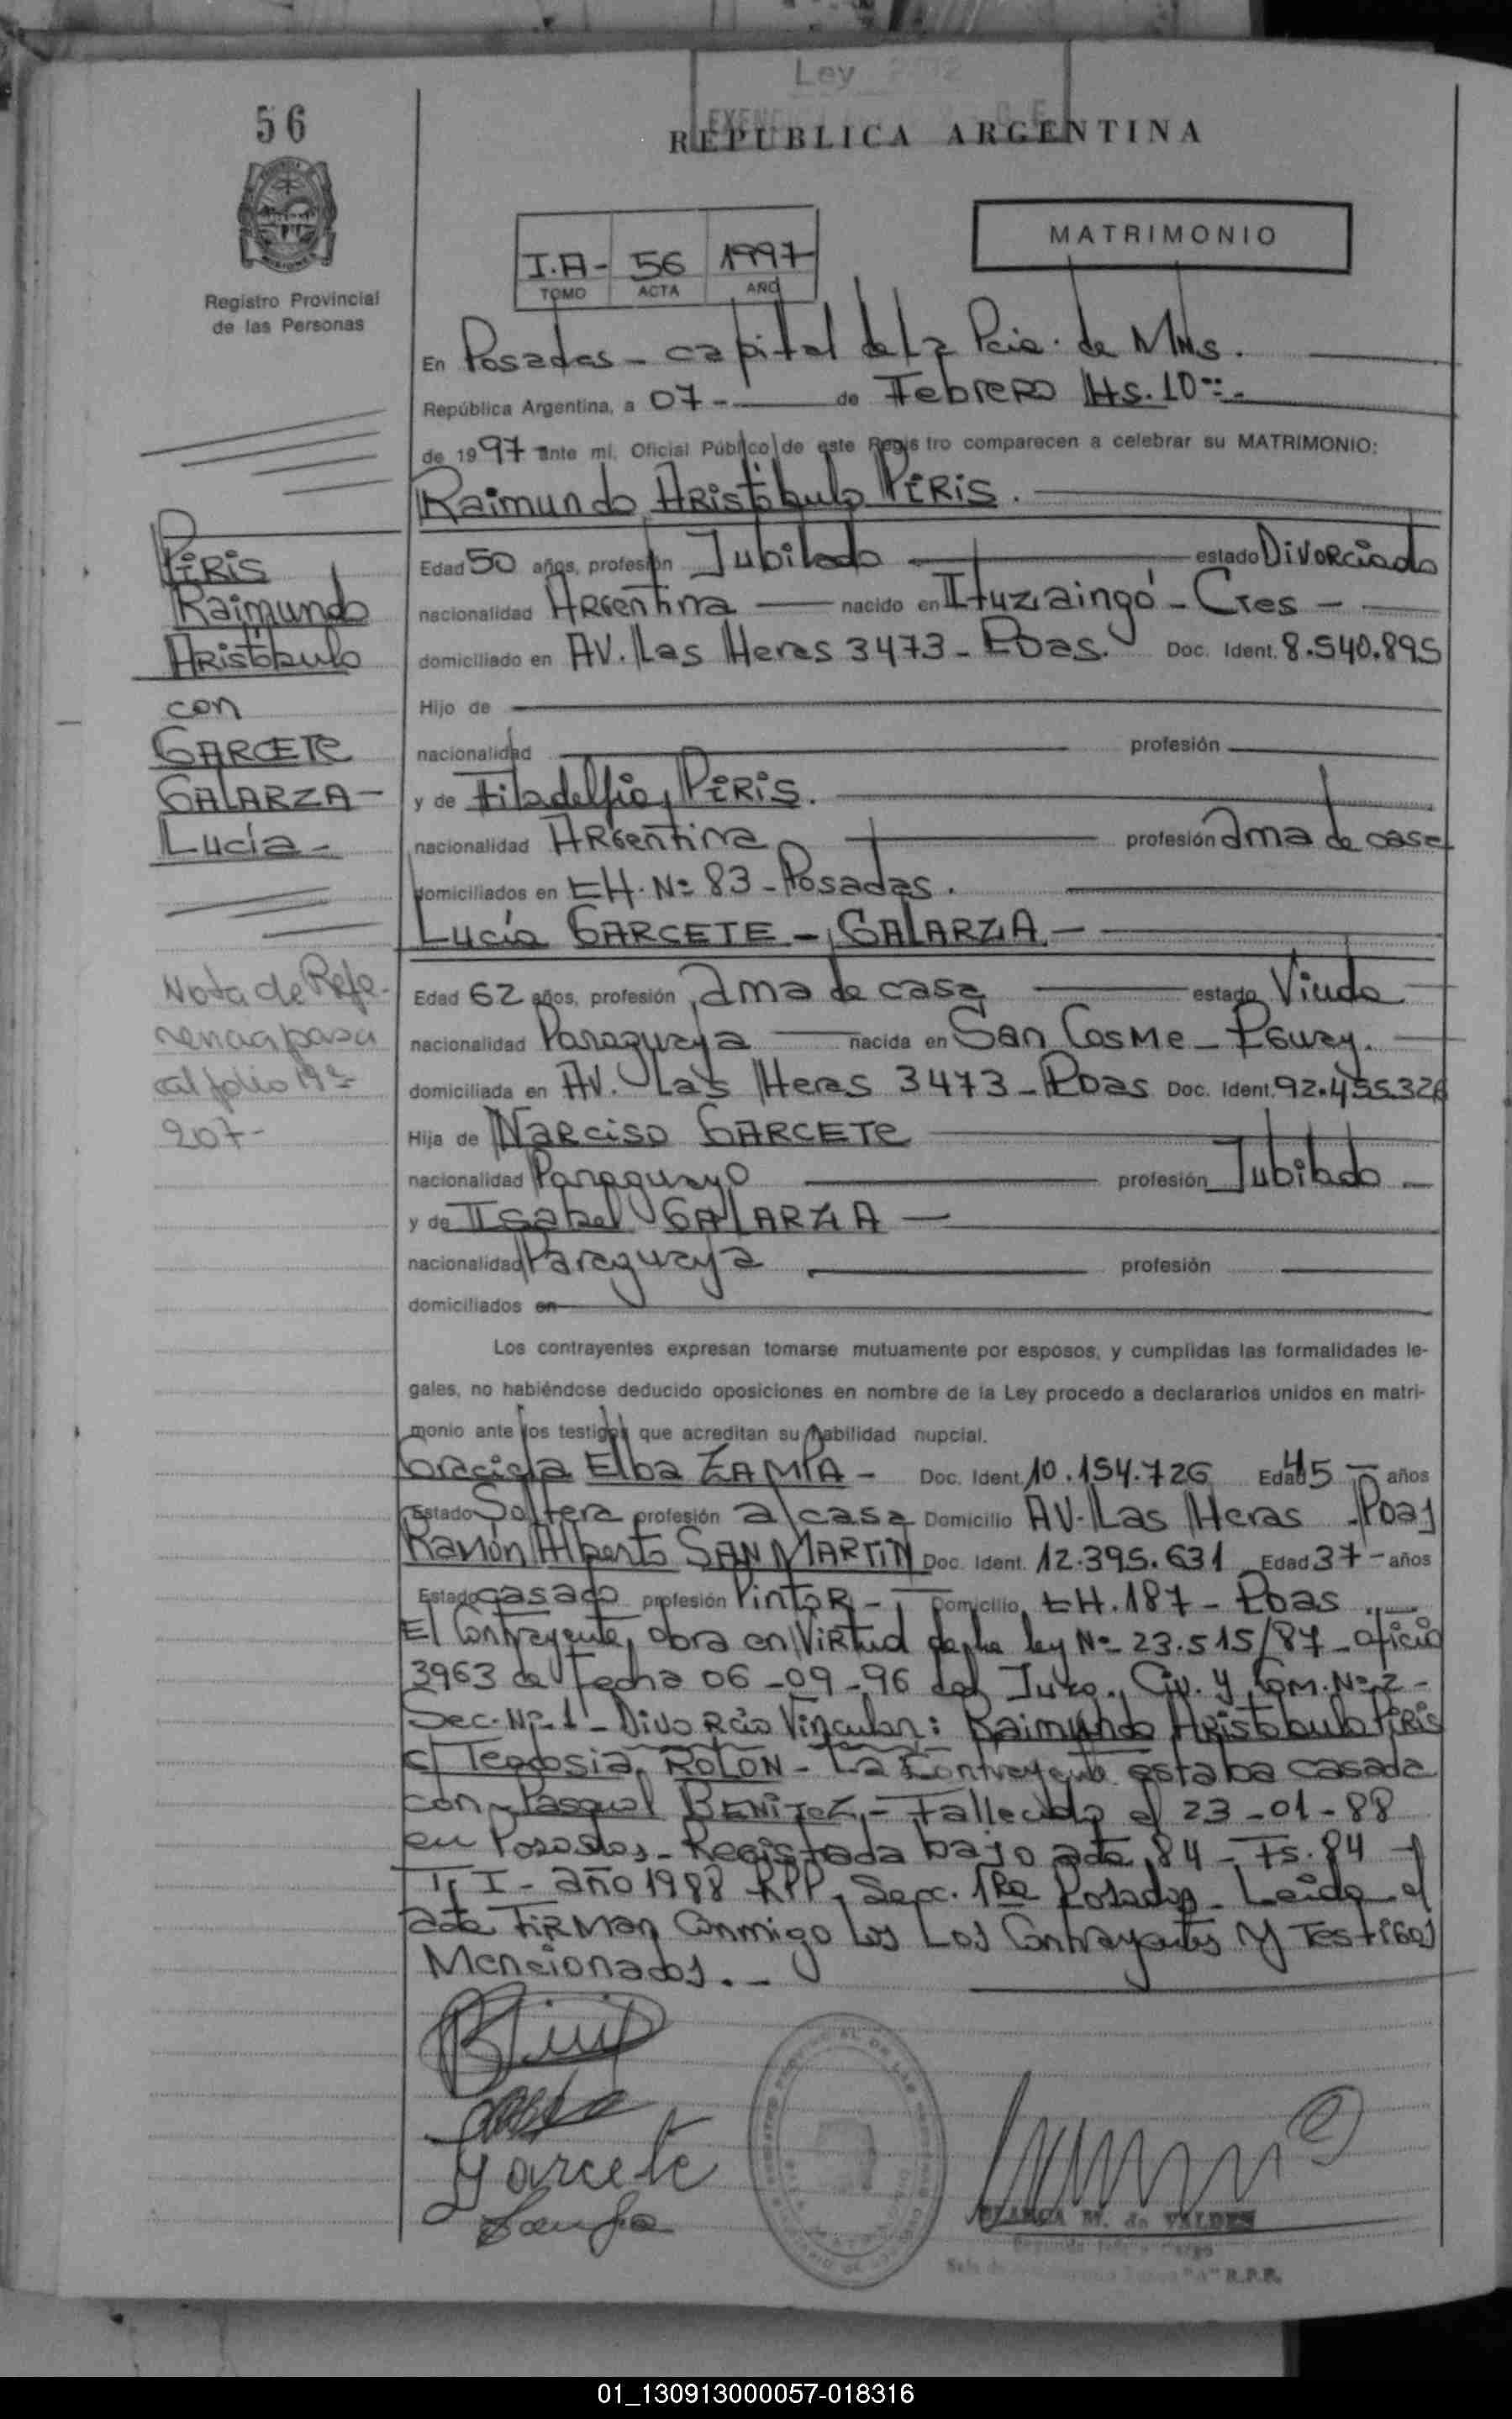 Ley
56
REPUBLICA ARGENTINA
MATRIMONIO
I.A- 56 1997
TOMO ACTA AÑO
Registro Provincial
de las Personas
En Posadas - capital de la Pcia. de Mnes.
República Argentina, a 07- de Febrero Hs. 10
de 1997 ante mí, Oficial Público de este Registro comparecen a celebrar su MATRIMONIO:
Raimundo Aristóbulo PIRIS.
Edad 50 años, profesión Jubilado estado Divorciado
nacionalidad Argentina nacido en Ituzaingó - Ctes -
domiciliado en AV. Las Heras 3473 - Pdas. Doc. Ident. 8.540.895
Hijo de
nacionalidad profesión
y de Filadelfia PIRIS.
nacionalidad Argentina profesión ama de casa
domiciliados en CH. Nº 83 - Posadas.
Lucía GARCETE - GALARZA -
Edad 62 años, profesión ama de casa estado Viuda
nacionalidad Paraguaya nacida en San Cosme - Pguay.
domiciliada en AV. Las Heras 3473 - Pdas Doc. Ident. 92.455.326
Hija de Narciso GARCETE
nacionalidad Paraguayo profesión Jubilado -
y de Isabel GALARZA -
nacionalidad Paraguaya profesión
domiciliados en
PIRIS
Raimundo
Aristóbulo
con
GARCETE
GALARZA -
Lucía -
Nota de Refe-
rencia pasa
al folio Nº
207-
Los contrayentes expresan tomarse mutuamente por esposos, y cumplidas las formalidades le-
gales, no habiéndose deducido oposiciones en nombre de la Ley procedo a declararlos unidos en matri-
monio ante los testigos que acreditan su habilidad nupcial.
Graciela Elba ZAMPA - Doc. Ident. 10.154.726 Edad 45 - años
Estado Soltera profesión a/casa Domicilio AV. Las Heras - Pdas
Ramón Alberto SAN MARTIN Doc. Ident. 12.395.631 Edad 37 - años
Estado casado profesión Pintor - Domicilio CH. 187 - Pdas
El Contrayente, obra en Virtud de la ley Nº 23.515/87 - oficio
3963 de fecha 06-09-96 del Juzg. Civ. y Com. Nº 2 -
Sec. Nº 1 - Divorcio Vincular: Raimundo Aristobulo PIRIS
c/ Teodosia ROLON - La Contrayente estaba casada
con Pasqual BENITEZ - Fallecido el 23-01-88
en Posadas - Registrada bajo acta 84 - Fs. 84 -
T. I - año 1988 RPP. Secc. 1Ra Posadas - Leida el
acta FIRMAN Conmigo los Los Contrayentes y Testigos
Mencionados. -
Garcete
BLANCA M. de VALDES
"A" R.P.P.
01_130913000057-018316